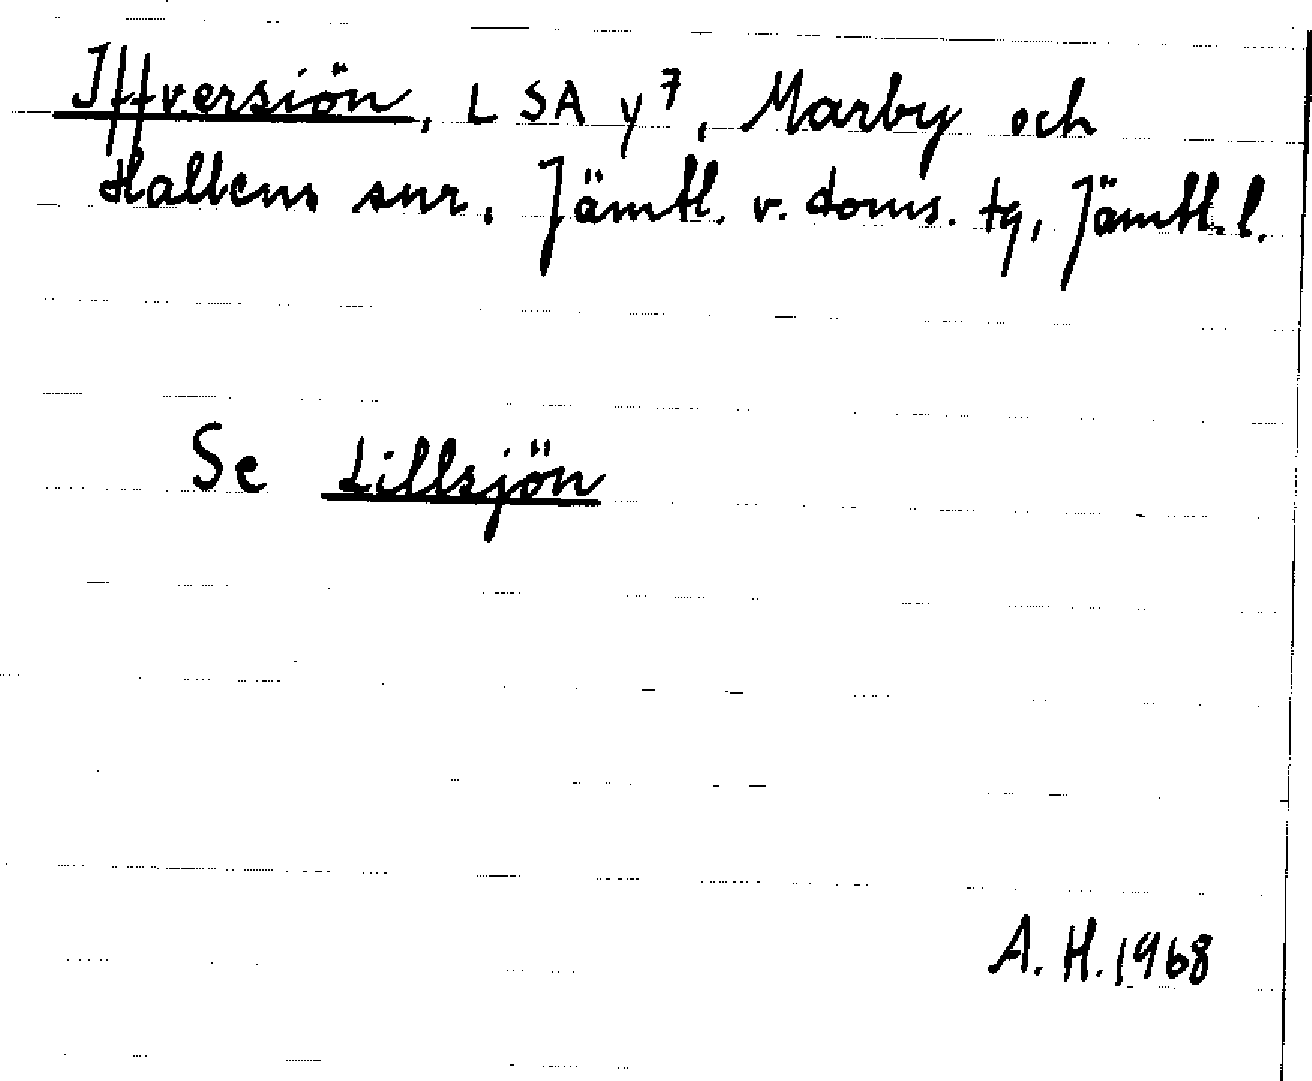 Iffversiön, L SA y7, Marby och
Hallens snr, Jämtl. v. doms. tg, Jämtl. l.
Se Lillsjön
A. H. 1968